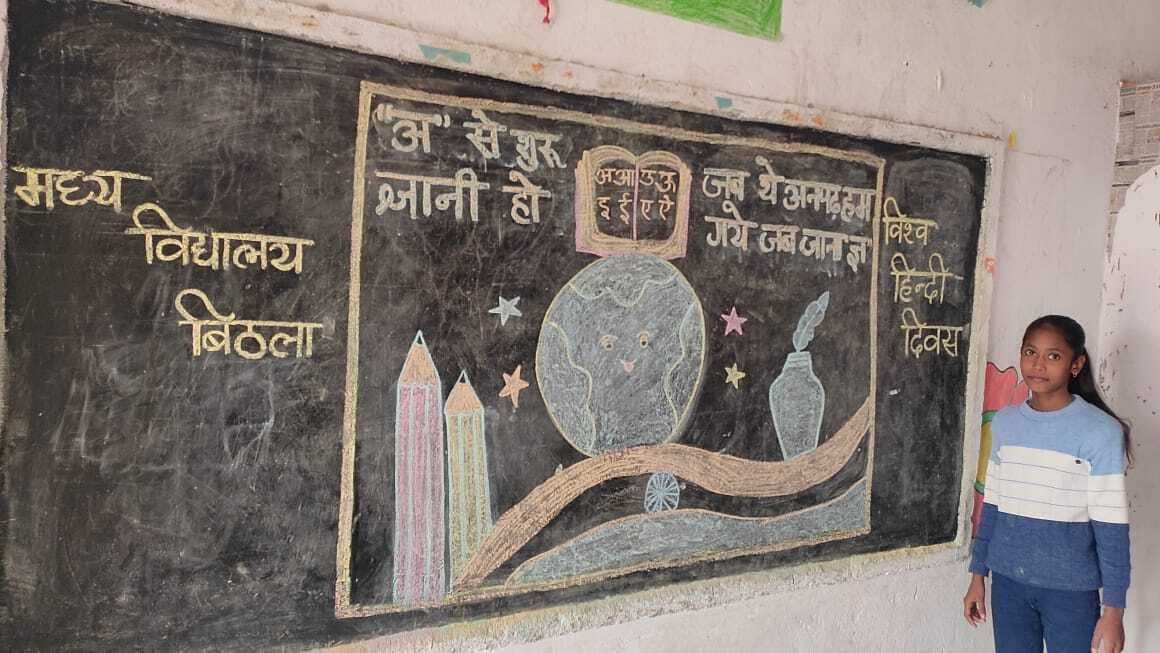 मध्य
विद्यालय
बिठला
"अ" से शुरू
ज्ञानी हो
अ आ उ ऊ
इ ई ए ऐ
जब थे अनपढ़ हम
गये जब जाना ज्ञ
विश्व
हिन्दी
दिवस